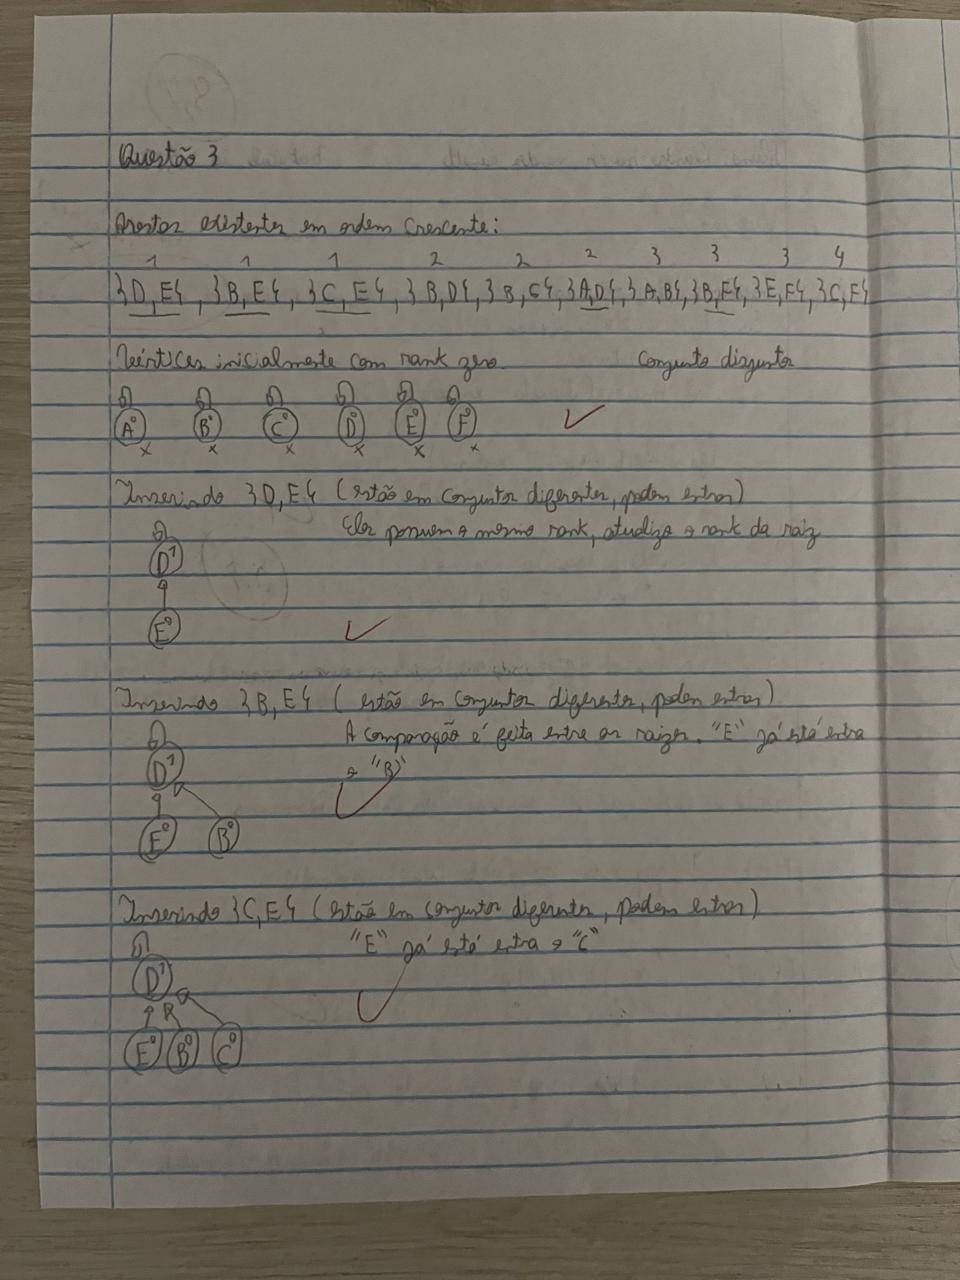 Questão 3
Arestas existentes em ordem crescente:
1 1 1 2 2 2 3 3 3 4
{D,E}, {B,E}, {C,E}, {B,D}, {B,C}, {A,D}, {A,B}, {B,F}, {E,F}, {C,F}
Vértices inicialmente com rank zero. Conjunto disjuntos
A⁰ B⁰ C⁰ D⁰ E⁰ F⁰
x x x x x x
Inserindo {D,E} (estão em conjuntos diferentes, podem entrar)
Eles possuem o mesmo rank, atualiza o rank da raiz
D¹
E⁰
Inserindo {B,E} (estão em conjuntos diferentes, podem entrar)
A comparação é feita entre as raizes. "E" já está entra
o "B"
D¹
E⁰ B⁰
Inserindo {C,E} (estão em conjuntos diferentes, podem entrar)
"E" já está entra o "C"
D¹
E⁰ B⁰ C⁰